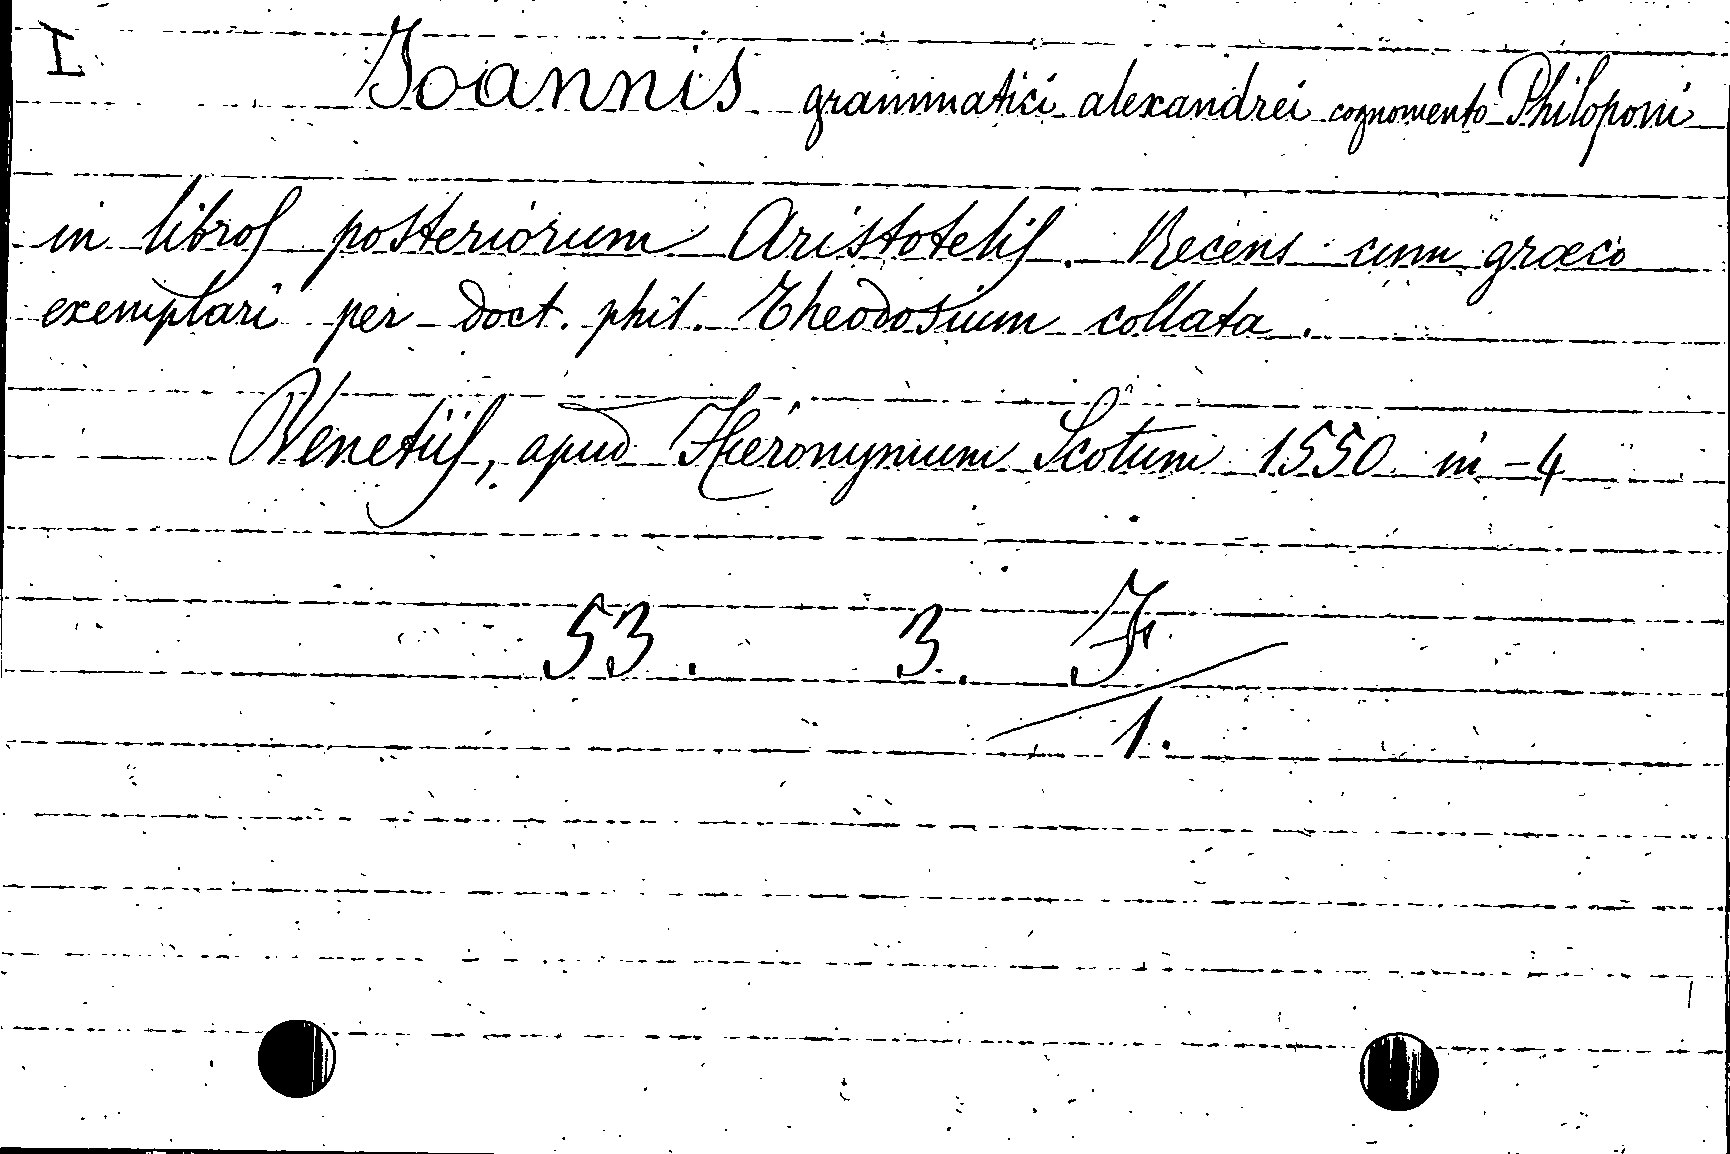 I
Joannis grammatici alexandrei cognomento Philoponi
in libros posteriorum Aristotelis. Recens cum græco
exemplari per doct. phil. Theodosium collata.
Venetiis, apud Hieronymum Scotum 1550 in-4
53. 3. F
1.